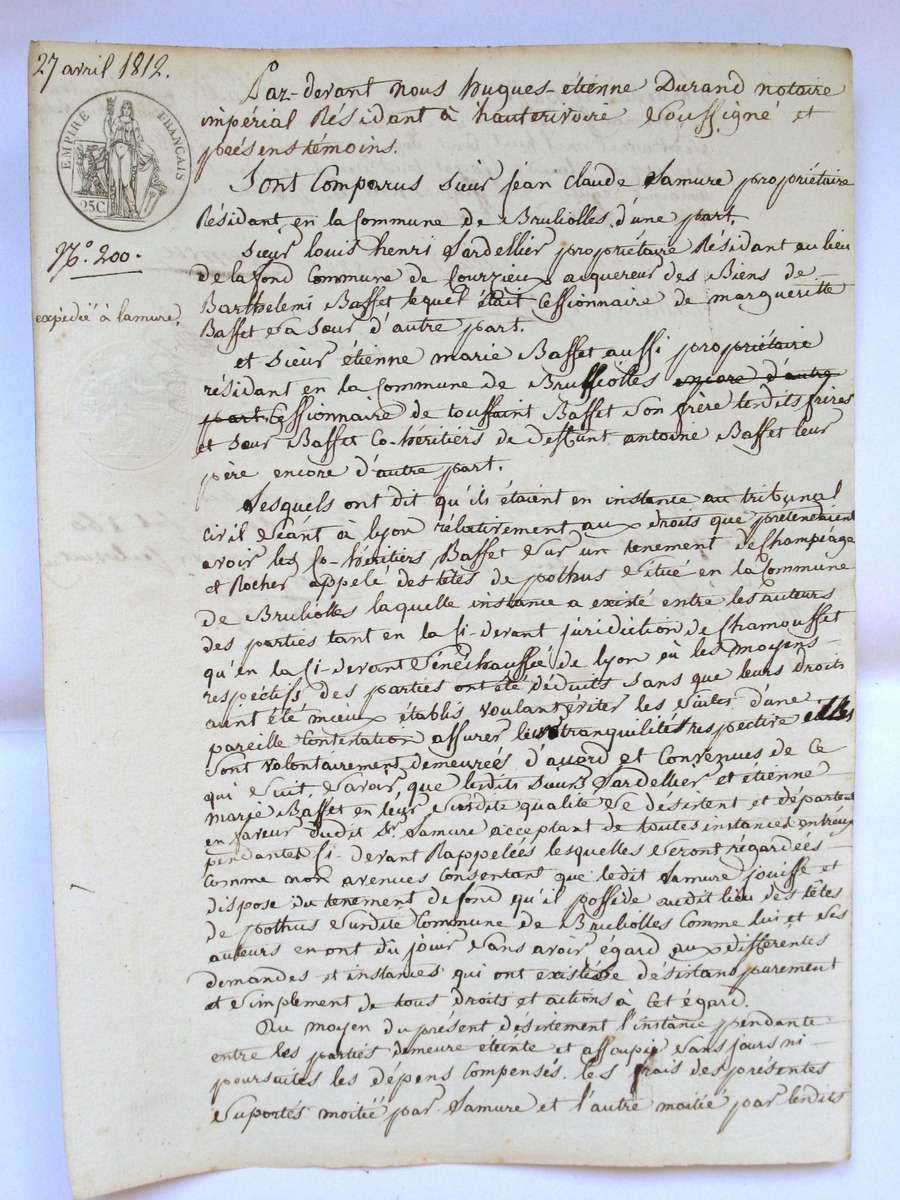 27 avril 1812.
EMPIRE FRANÇAIS
25C
N.º 200.
expédié à lamure.
Par-devant nous hugues-étienne Durand notaire
impérial Résidant à hauterivoire soussigné et
présens témoins.
Sont Comparus sieur jean claude Lamure propriétaire
Résidant en la Commune de Brullolles d'une part.
Sieur louis henri Sardellier propriétaire Résidant au lieu
de lafond Commune de Courzieux acquereur des Biens de
Barthelemi Basset lequel était Cessionnaire de margueritte
Basset sa sœur d'autre part.
et sieur étienne marie Basset aussi propriétaire
résidant en la Commune de Brussiolles encore d'autre
part. Cessionnaire de toussaint Basset son frère lesdits frères
et sœur Basset Co-héritiers de défunt antoine Basset leur
père encore d'autre part.
Lesquels ont dit qu'ils étaient en instance au tribunal
civil séant à lyon rélativement aux droits que prétendaient
avoir les Co-héritiers Basset sur un tenement de Champéage
et Rocher appelé des têtes de pothus situé en la Commune
de Brullolles laquelle instance a existé entre les auteurs
des parties tant en la Ci-devant juridiction de Chamousset
qu'en la Ci-devant sénéchaussée de lyon où les moyens
respectifs des parties ont été déduits sans que leurs droits
aient été mieux établis voulant éviter les suites d'une
pareille Contestation assurer leur tranquilités respective elles
sont volontairement demeurées d'acord et Convenues de ce
qui suit. savoir, que lesdits sieurs Sardellier et étienne
marie Basset en leur susdite qualité se désistent et départent
en faveur dudit Sr. Lamure acceptant de toutes instances entr'eux
pendantes Ci-devant Rappelées lesquelles seront régardées
Comme non avenues Consentant que ledit Lamure jouisse et
dispose du tenement de fond qu'il possède audit lieu des têtes
de pothus susdite Commune de Brullolles Comme lui et ses
auteurs en ont dû jouir sans avoir égard aux différentes
demandes et instances qui ont existé se désistans purement
et simplement de tous droits et actions à Cet égard.
Au moyen du présent désistement l'instance pendante
entre les parties demeure éteinte et assoupie sans jours ni
poursuites les dépens Compensés. les frais des présentes
suportés moitié par Lamure et l'autre moitié par lesdits